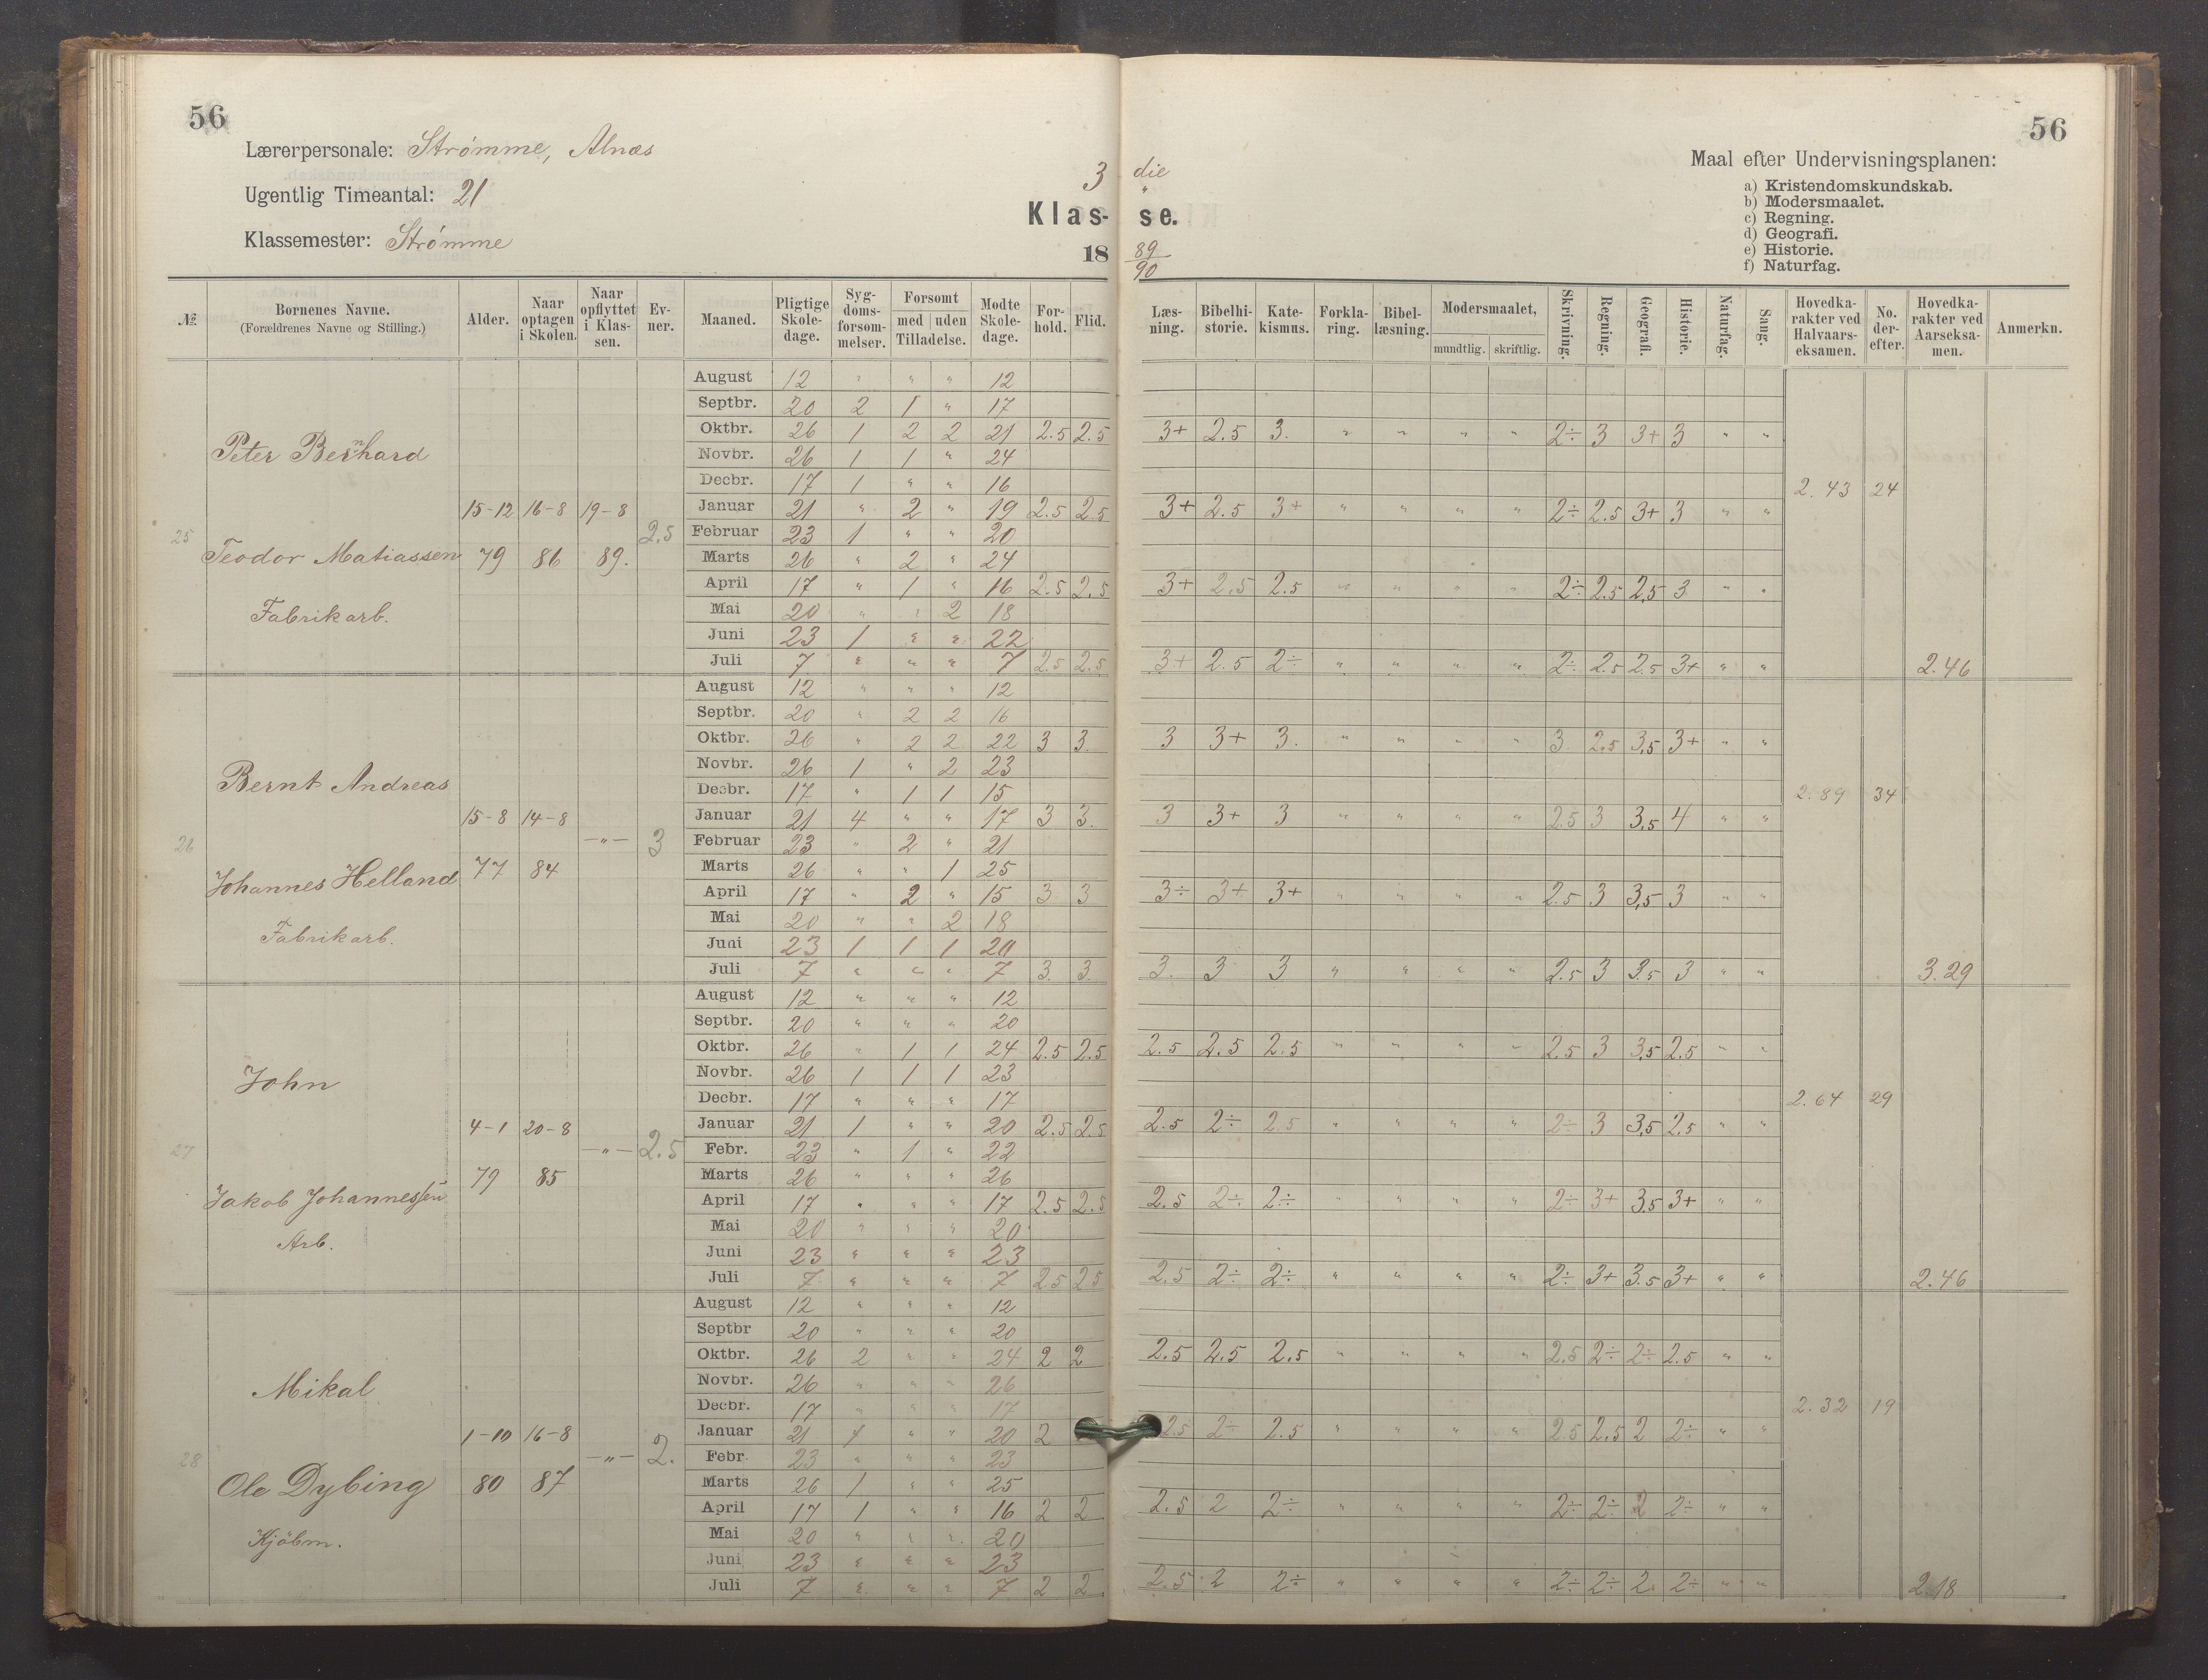 56
56
Lærerpersonale: Strømme, Alnæs
Ugentlig Timeantal: 21
Klassemester: Strømme
3 die
Klas- se.
18 89/90
Maal efter Undervisningsplanen:
a) Kristendomskundskab.
b) Modersmaalet.
c) Regning.
d) Geografi.
e) Historie.
f) Naturfag.
№ Bornenes Navne. (Forældrenes Navne og Stilling.) Alder. Naar optagen i Skolen. Naar opflyttet i Klassen. Evner. Maaned. Pligtige Skoledage. Sygdomsforsommelser. Forsomt med uden Tilladelse. Modte Skoledage. Forhold. Flid. Læsning. Bibelhistorie. Katekismus. Forklaring. Bibellæsning. Modersmaalet, mundtlig. skriftlig. Skrivning. Regning. Geografi. Historie. Naturfag. Sang. Hovedkarakter ved Halvaarseksamen. No. derefter. Hovedkarakter ved Aarseksamen. Anmerkn.
25 Peter Bernhard
Teodor Matiassen
Fabrikarb.
15-12 79 16-8 86 19-8 89. 2.5
August 12 " " " 12
Septbr. 20 2 1 " 17
Oktbr. 26 1 2 2 21 2.5 2.5 3+ 2.5 3. " " " " 2÷ 3 3+ 3 " "
Novbr. 26 1 1 " 24
Decbr. 17 1 " " 16 2.43 24
Januar 21 " 2 " 19 2.5 2.5 3+ 2.5 3+ " " " " 2÷ 2.5 3+ 3 " "
Februar 23 1 " " 20
Marts 26 " 2 " 24
April 17 " 1 " 16 2.5 2.5 3+ 2.5 2.5 " " " " 2÷ 2.5 2,5 3 " "
Mai 20 " " 2 18
Juni 23 1 " " 22
Juli 7 " " " 7 2.5 2.5 3+ 2.5 2÷ " " " " 2÷ 2.5 2.5 3+ " " 2.46
26 Bernt Andreas
Johannes Helland
Fabrikarb.
15-8 77 14-8 84 -"- 3
August 12 " " " 12
Septbr. 20 " 2 2 16
Oktbr. 26 " 2 2 22 3 3. 3 3+ 3. " " " " 3 2.5 3,5 3+ " "
Novbr. 26 1 " 2 23
Decbr. 17 " 1 1 15 2.89 34
Januar 21 4 " " 17 3 3. 3 3+ 3 " " " " 2.5 3 3,5 4 " "
Februar 23 " 2 " 21
Marts 26 " " 1 25
April 17 " 2 " 15 3 3 3÷ 3+ 3+ " " " " 2.5 3 3,5 3 " "
Mai 20 " " 2 18
Juni 23 1 1 1 20
Juli 7 " " " 7 3. 3. 3. 3 3 " " " " 2.5 3 3.5 3 " " 3.29
27 John
Jakob Johannessen
Arb.
4-1 79 20-8 85 -"- 2.5
August 12 " " " 12
Septbr. 20 " " " 20
Oktbr. 26 " 1 1 24 2.5 2.5 2.5 2.5 2.5 " " " " 2.5 3 3,5 2.5 " "
Novbr. 26 1 1 1 23
Decbr. 17 " " " 17 2.64 29
Januar 21 1 " " 20 2.5 2.5 2.5 2÷ 2.5 " " " " 2÷ 3 3,5 2.5 " "
Febr. 23 " 1 " 22
Marts 26 " " " 26
April 17 " " " 17 2.5 2.5 2.5 2÷ 2÷ " " " " 2÷ 3+ 3.5 3+ " "
Mai 20 " " " 20
Juni 23 " " " 23
Juli 7 " " " 7 2.5 2.5 2.5 2÷ 2÷ " " " " 2÷ 3+ 3.5 3+ " " 2.46
28 Mikal
Ole Dybing
Kjøbm.
1-10 80 16-8 87 -"- 2.
August 12 " " " 12
Septbr 20 " " " 20
Oktbr. 26 2 " " 24 2 2 2.5 2.5 2.5 " " " " 2.5 2÷ 2÷ 2.5 " "
Novbr. 26 " " " 26
Decbr. 17 " " " 17 2.32 19
Januar 21 1 " " 20 2 2.5 2÷ 2.5 " " " " 2.5 2.5 2 2÷ " "
Febr. 23 " " " 23
Marts 26 1 " " 25
April 17 1 " " 16 2 2 2.5 2 2÷ " " " " 2÷ 2÷ 2 2÷ " "
Mai 20 " " " 20
Juni 23 " " " 23
Juli 7 " " " 7 2 2 2.5 2 2÷ " " " " 2÷ 2÷ 2. 2÷ " " 2.18